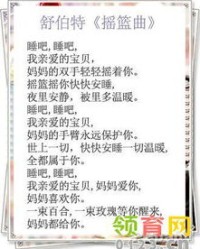 舒伯特《摇篮曲》
睡吧,睡吧,
我亲爱的宝贝,
妈妈的双手轻轻摇着你。
摇篮摇你快快安睡,
夜里安静，被里多温暖。
睡吧,睡吧,
我亲爱的宝贝,
妈妈的手臂永远保护你。
世上一切，快快安睡一切温暖,
全都属于你。
睡吧,睡吧,
我亲爱的宝贝,妈妈爱你,
妈妈喜欢你。
一束百合,一束玫瑰等你醒来,
妈妈都给你。
领育网